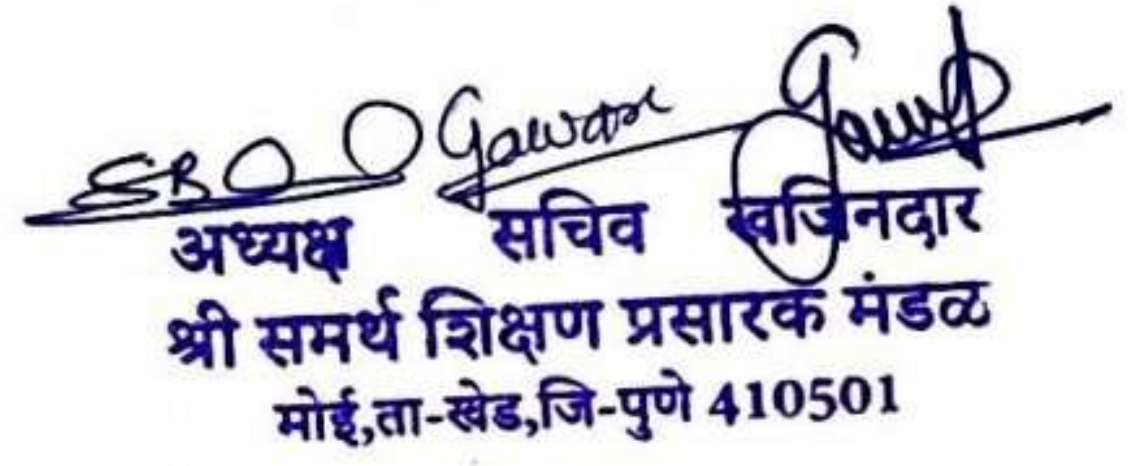 अध्यक्ष सचिव खजिनदार
श्री समर्थ शिक्षण प्रसारक मंडळ
मोई,ता-खेड,जि-पुणे 410501